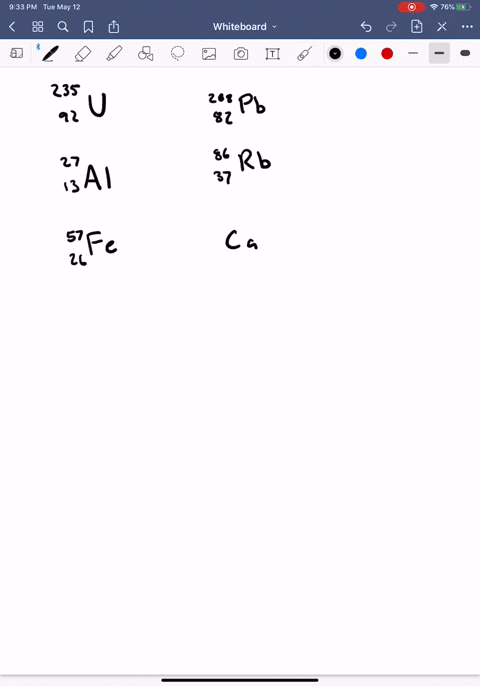 9:33 PM Tue May 12
76%
Whiteboard
235
92 U
208
82 Pb
27
13 Al
86
37 Rb
57
26 Fe
Ca